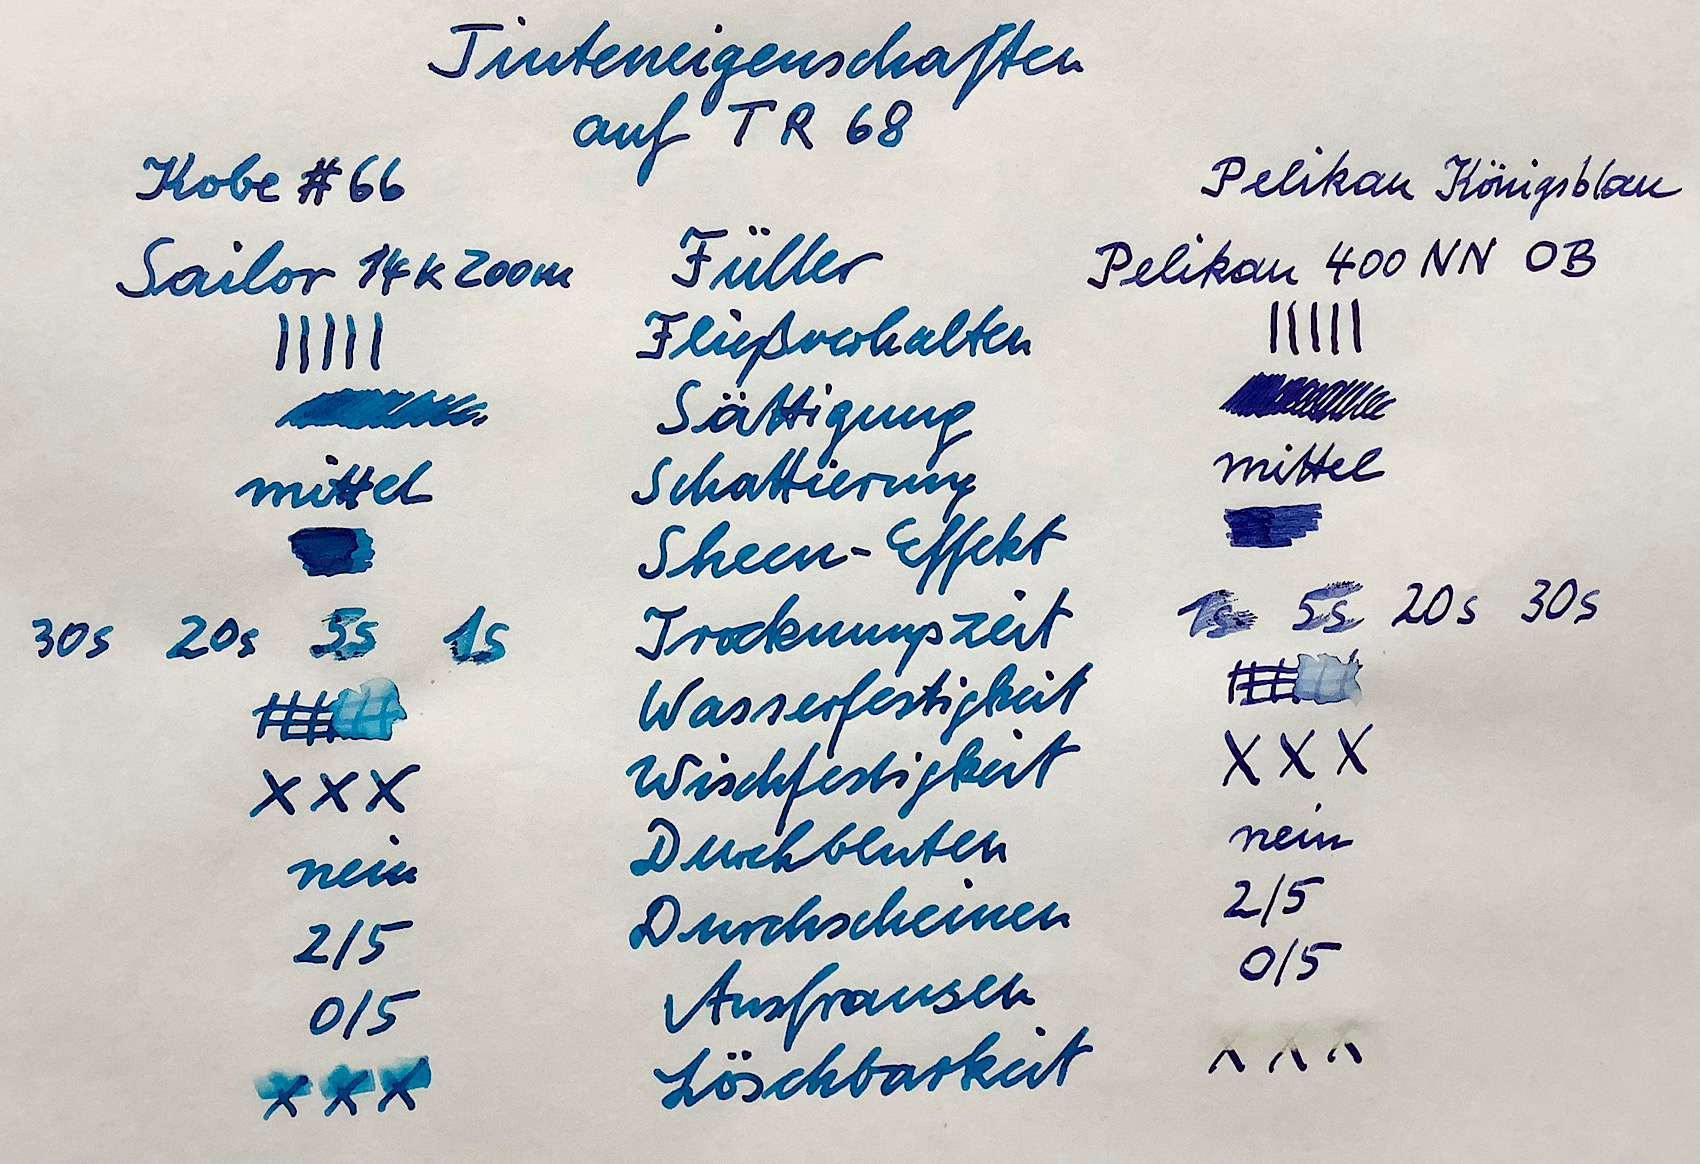 Tinteneigenschaften
auf TR 68
Kobe #66 Pelikan Königsblau
Sailor 14K Zoom Füller Pelikan 400 NN OB
||||| Fließverhalten |||||
Sättigung
mittel Schattierung mittel
Sheen-Effekt
30s 20s 5s 1s Trocknungszeit 1s 5s 20s 30s
Wasserfestigkeit
X X X Wischfestigkeit X X X
nein Durchbluten nein
2/5 Durchscheinen 2/5
0/5 Ausfransen 0/5
X X X Löschbarkeit X X X